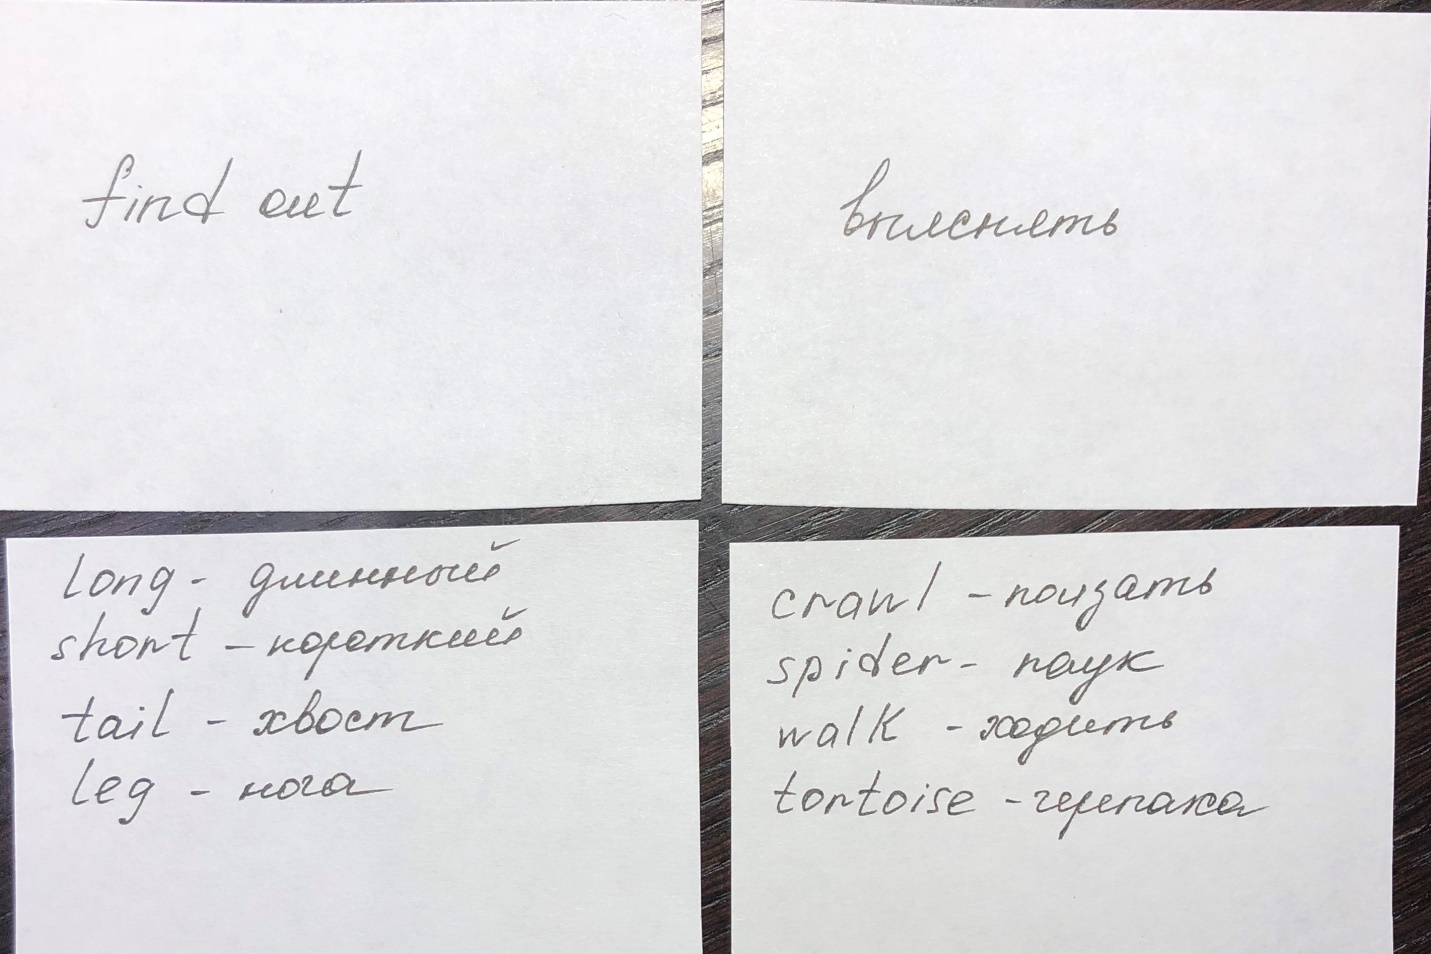 find out
выяснять
long - длинный
short - короткий
tail - хвост
leg - нога
crawl - ползать
spider - паук
walk - ходить
tortoise - черепаха